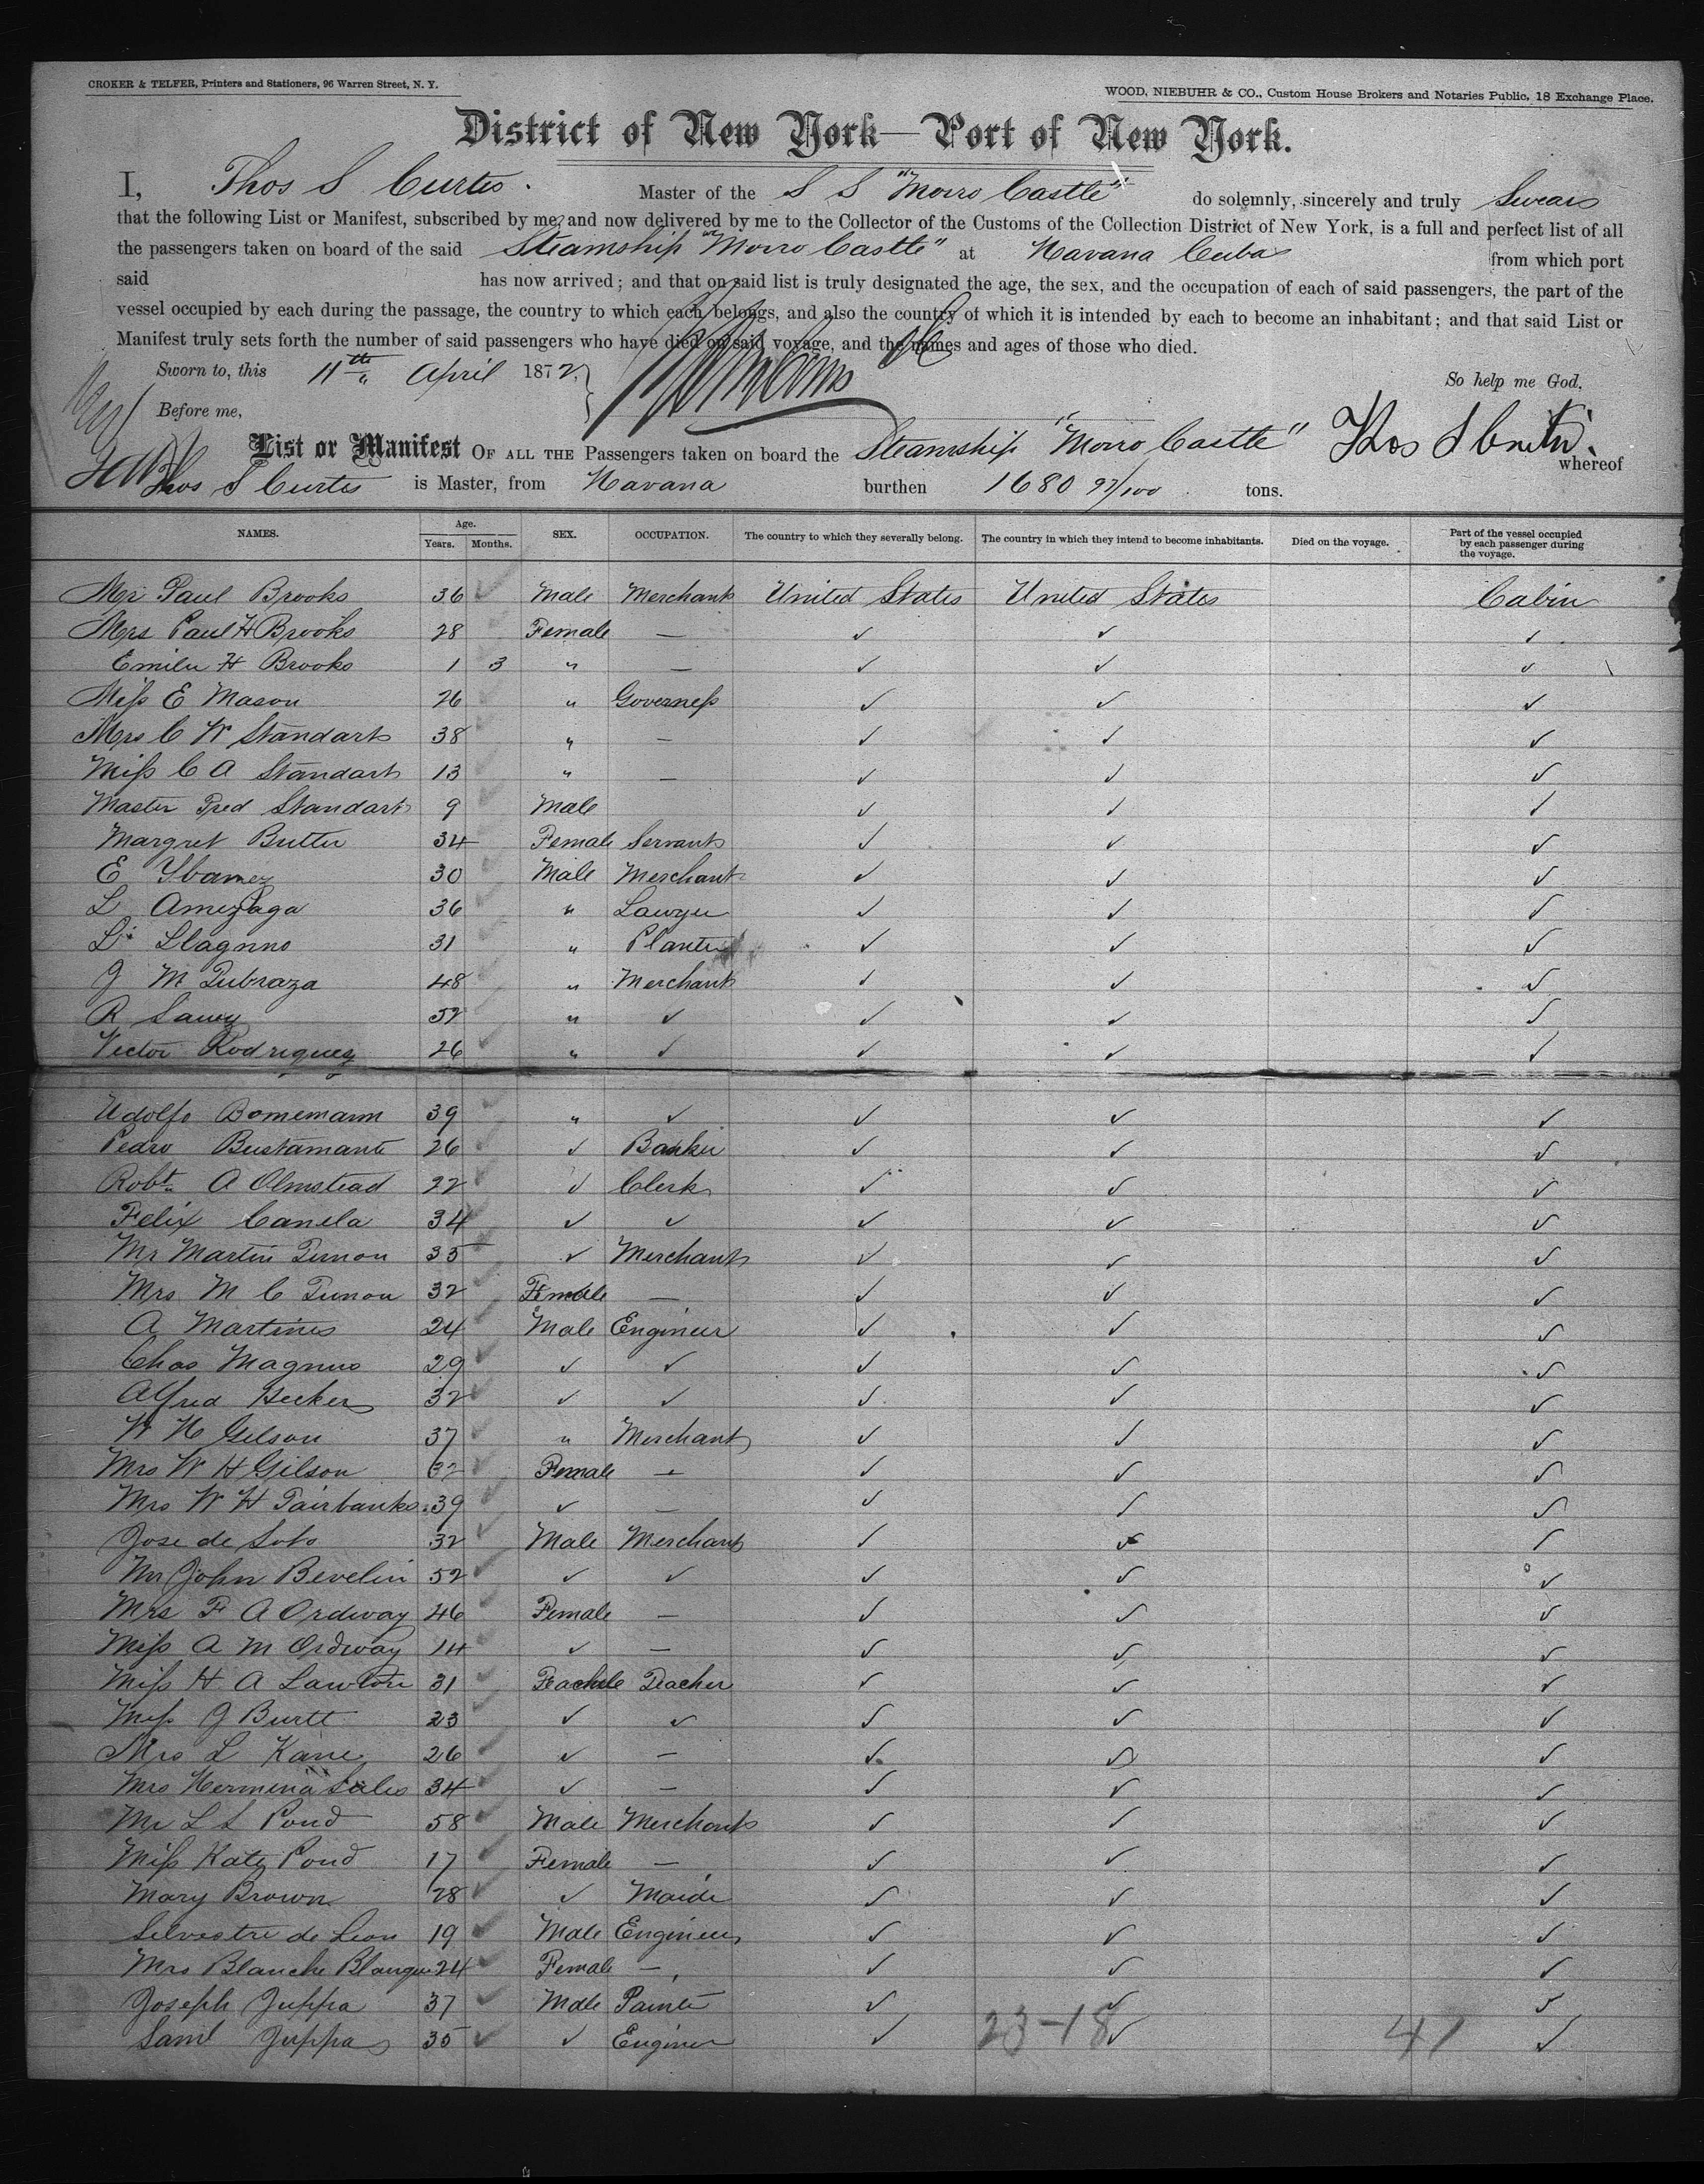 CROKER & TELFER, Printers and Stationers, 96 Warren Street, N. Y.
WOOD, NIEBUHR & CO., Custom House Brokers and Notaries Public, 18 Exchange Place.
District of New York—Port of New York.
I, Thos S Curtis. Master of the S S "Morro Castle" do solemnly, sincerely and truly Swear
that the following List or Manifest, subscribed by me, and now delivered by me to the Collector of the Customs of the Collection District of New York, is a full and perfect list of all
the passengers taken on board of the said Steamship "Morro Castle" at Havana Cuba from which port
said has now arrived; and that on said list is truly designated the age, the sex, and the occupation of each of said passengers, the part of the
vessel occupied by each during the passage, the country to which each belongs, and also the country of which it is intended by each to become an inhabitant; and that said List or
Manifest truly sets forth the number of said passengers who have died on said voyage, and the names and ages of those who died.
Sworn to, this 11th April 1872,
So help me God,
Before me,
Thos S Curtis.
List or Manifest OF ALL THE Passengers taken on board the Steamship "Morro Castle" whereof
Thos S Curtis is Master, from Havana burthen 1680 97/100 tons.
NAMES. Age. Years. Months. SEX. OCCUPATION. The country to which they severally belong. The country in which they intend to become inhabitants. Died on the voyage. Part of the vessel occupied by each passenger during the voyage.
Mr Paul Brooks 36 ✓ Male Merchant United States United States Cabin
Mrs Paul H Brooks 28 Female — ✓ ✓ ✓
Emilie H Brooks 1 3 " — ✓ ✓ ✓
Miss E Mason 26 " Governess ✓ ✓ ✓
Mrs C W Standart 38 " — ✓ ✓ ✓
Miss C A Standart 13 " — ✓ ✓ ✓
Master Fred Standart 9 Male ✓ ✓ ✓
Margret Butter 34 Female Servant ✓ ✓ ✓
E Ybanez 30 Male Merchant ✓ ✓ ✓
L Amezaga 36 " Lawyer ✓ ✓ ✓
L. Llagunno 31 " Planter ✓ ✓ ✓
J M 48 " Merchant ✓ ✓ ✓
R 52 " ✓ ✓ ✓ ✓
Victor Rodriguez 26 " ✓ ✓ ✓ ✓
Adolfo Bornemann 39 " ✓ ✓ ✓ ✓
Pedro Bustamante 26 ✓ Banker ✓ ✓ ✓
Robt A Olmstead 22 ✓ Clerk ✓ ✓ ✓
Felix Canela 34 ✓ ✓ ✓ ✓ ✓
Mr Martin 35 ✓ Merchant ✓ ✓ ✓
Mrs M C 32 Female — ✓ ✓ ✓
A Martines 24 Male Engineer ✓ ✓ ✓
Chas Magnus 29 ✓ ✓ ✓ ✓ ✓
Alfred Hecker 32 ✓ ✓ ✓ ✓ ✓
W H Gilson 37 " Merchant ✓ ✓ ✓
Mrs W H Gilson 32 Female — ✓ ✓ ✓
Mrs W H Fairbanks 39 ✓ — ✓ ✓ ✓
Jose de Soto 32 Male Merchant ✓ ✓ ✓
Mr John Bevelin 52 ✓ ✓ ✓ ✓ ✓
Mrs F A Ordway 46 Female — ✓ ✓ ✓
Miss A M Ordway 14 ✓ — ✓ ✓ ✓
Miss H A Lawton 31 Female Teacher ✓ ✓ ✓
Miss J Burtt 23 ✓ ✓ ✓ ✓ ✓
Mrs L Kane 26 ✓ — ✓ ✓ ✓
Mrs Hermina Sales 34 ✓ — ✓ ✓ ✓
Mr L L Pond 58 Male Merchant ✓ ✓ ✓
Miss Katy Pond 17 Female — ✓ ✓ ✓
Mary Brown 28 ✓ Maide ✓ ✓ ✓
Silvestre de Leon 19 Male Engineer ✓ ✓ ✓
Mrs Blanche 24 Female — ✓ ✓ ✓
Joseph Juppa 37 Male Painter ✓ ✓ ✓
Saml Juppa 35 ✓ Engineer ✓ ✓ ✓
23-18 41